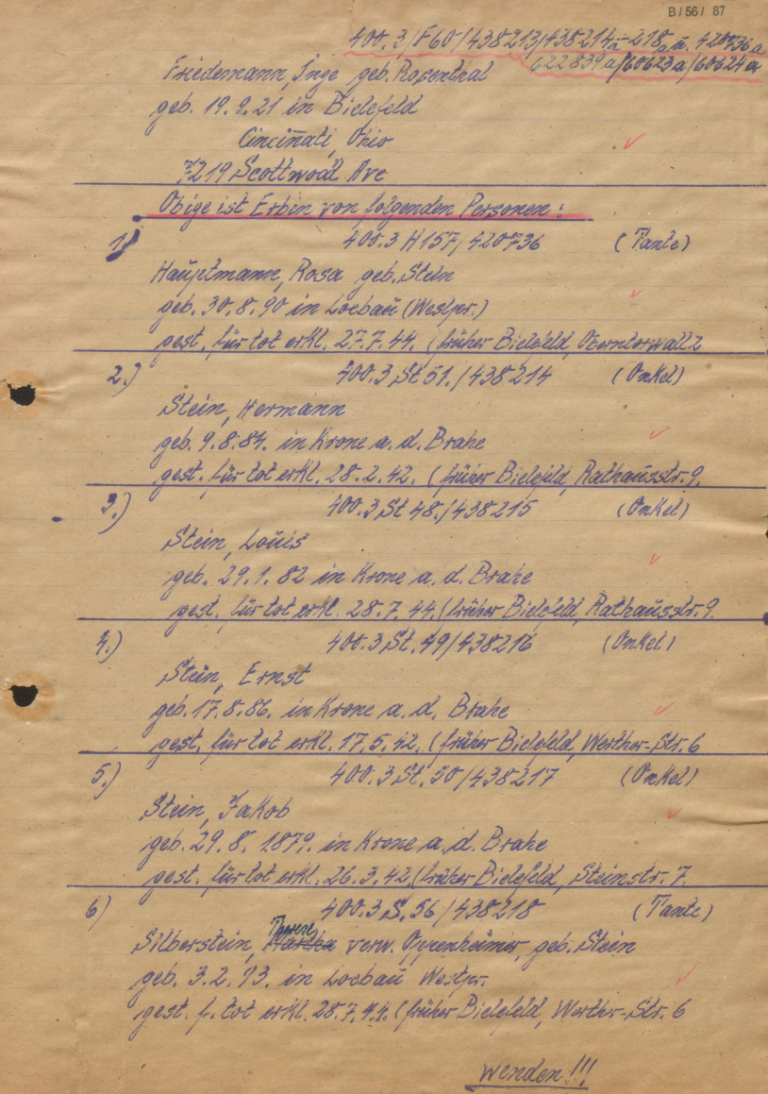 B/56/ 87
400.3/F60/438213/438214a-218a u. 420736a
622839a/60623a/60624a
Friedemann, Inge geb. Rosenthal
geb. 19.9.21 in Bielefeld
Cincinati, Ohio
7219 Scottwood Ave
Obige ist Erbin von folgenden Personen:
1) 400.3 H157/420736 (Tante)
Hauptmann, Rosa geb. Stein
geb. 30.8.90 in Loebau (Westpr.)
gest. für tot erkl. 27.7.44. (früher Bielefeld, Oberntorwall 2
2.) 400.3 St 51./438214 (Onkel)
Stein, Hermann
geb. 9.8.84. in Krone a. d. Brahe
gest. für tot erkl. 28.2.42. (früher Bielefeld, Rathausstr. 9.
3.) 400.3 St 48./438215 (Onkel)
Stein, Louis
geb. 29.1.82 in Krone a. d. Brahe
gest. für tot erkl. 28.7.44. (früher Bielefeld, Rathausstr. 9.
4.) 400.3 St. 49/438216 (Onkel)
Stein, Ernst
geb. 17.8.86. in Krone a. d. Brahe
gest. für tot erkl. 17.5.42. (früher Bielefeld, Werther-Str. 6
5.) 400.3 St. 50/438217 (Onkel)
Stein, Jakob
geb. 29.8.1879. in Krone a. d. Brahe
gest. für tot erkl. 26.3.42 (früher Bielefeld, Steinstr. 7.
6) 400.3 S. 56/438218 (Tante)
Silberstein, Martha verw. Oppenheimer, geb. Stein
geb. 3.2.93. in Loebau Westpr.
gest. f. tot erkl. 28.7.44. (früher Bielefeld, Werther-Str. 6
wenden!!!